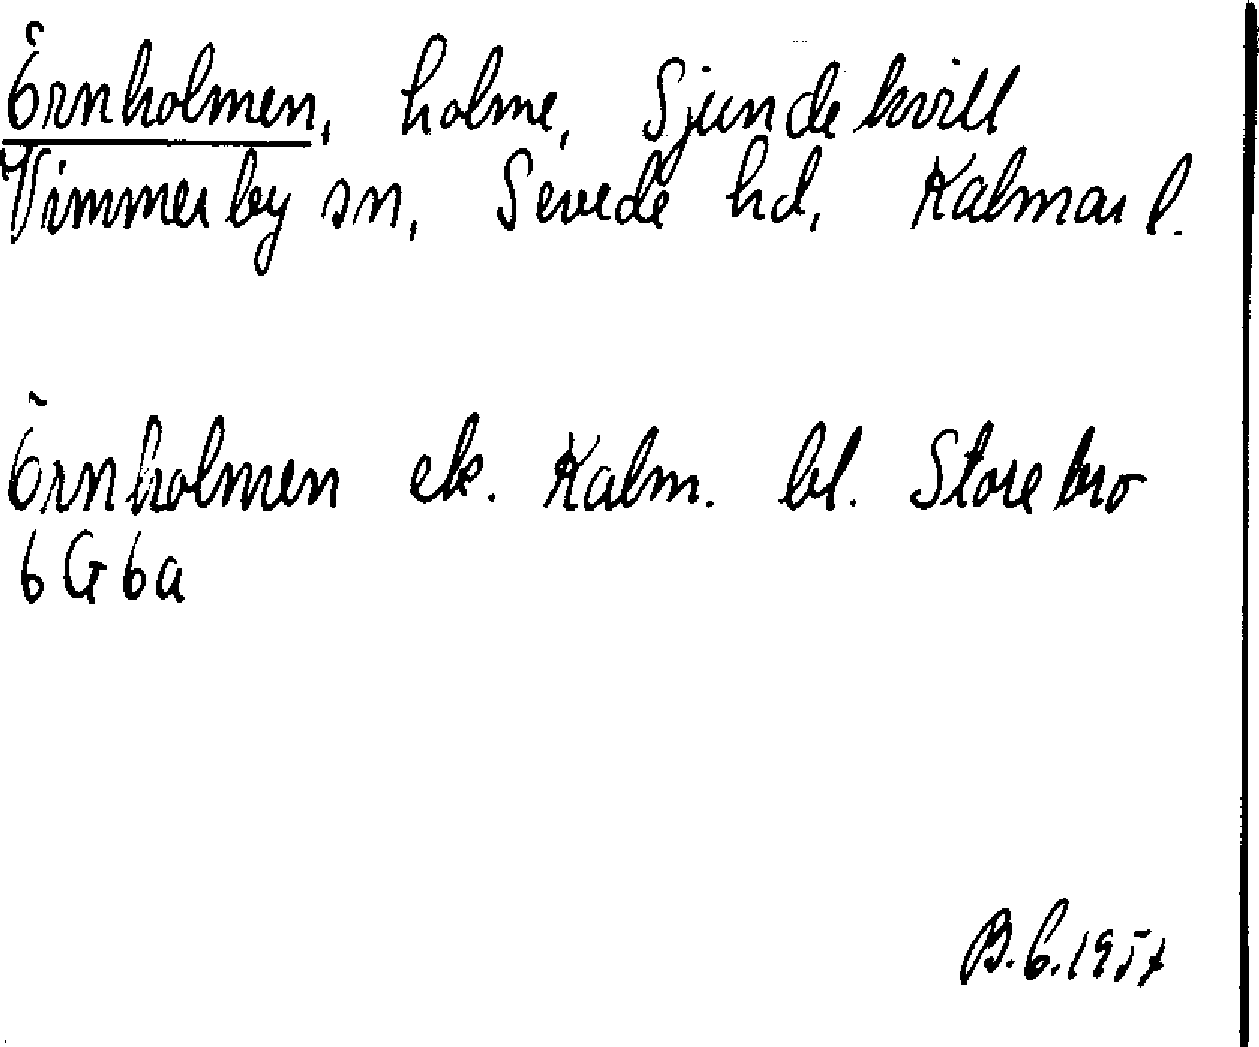 Örnholmen, holme, Sjundekvill
Vimmerby sn, Sevede hd, Kalmar l.
Örnholmen ek. Kalm. bl. Storebro
6G6a